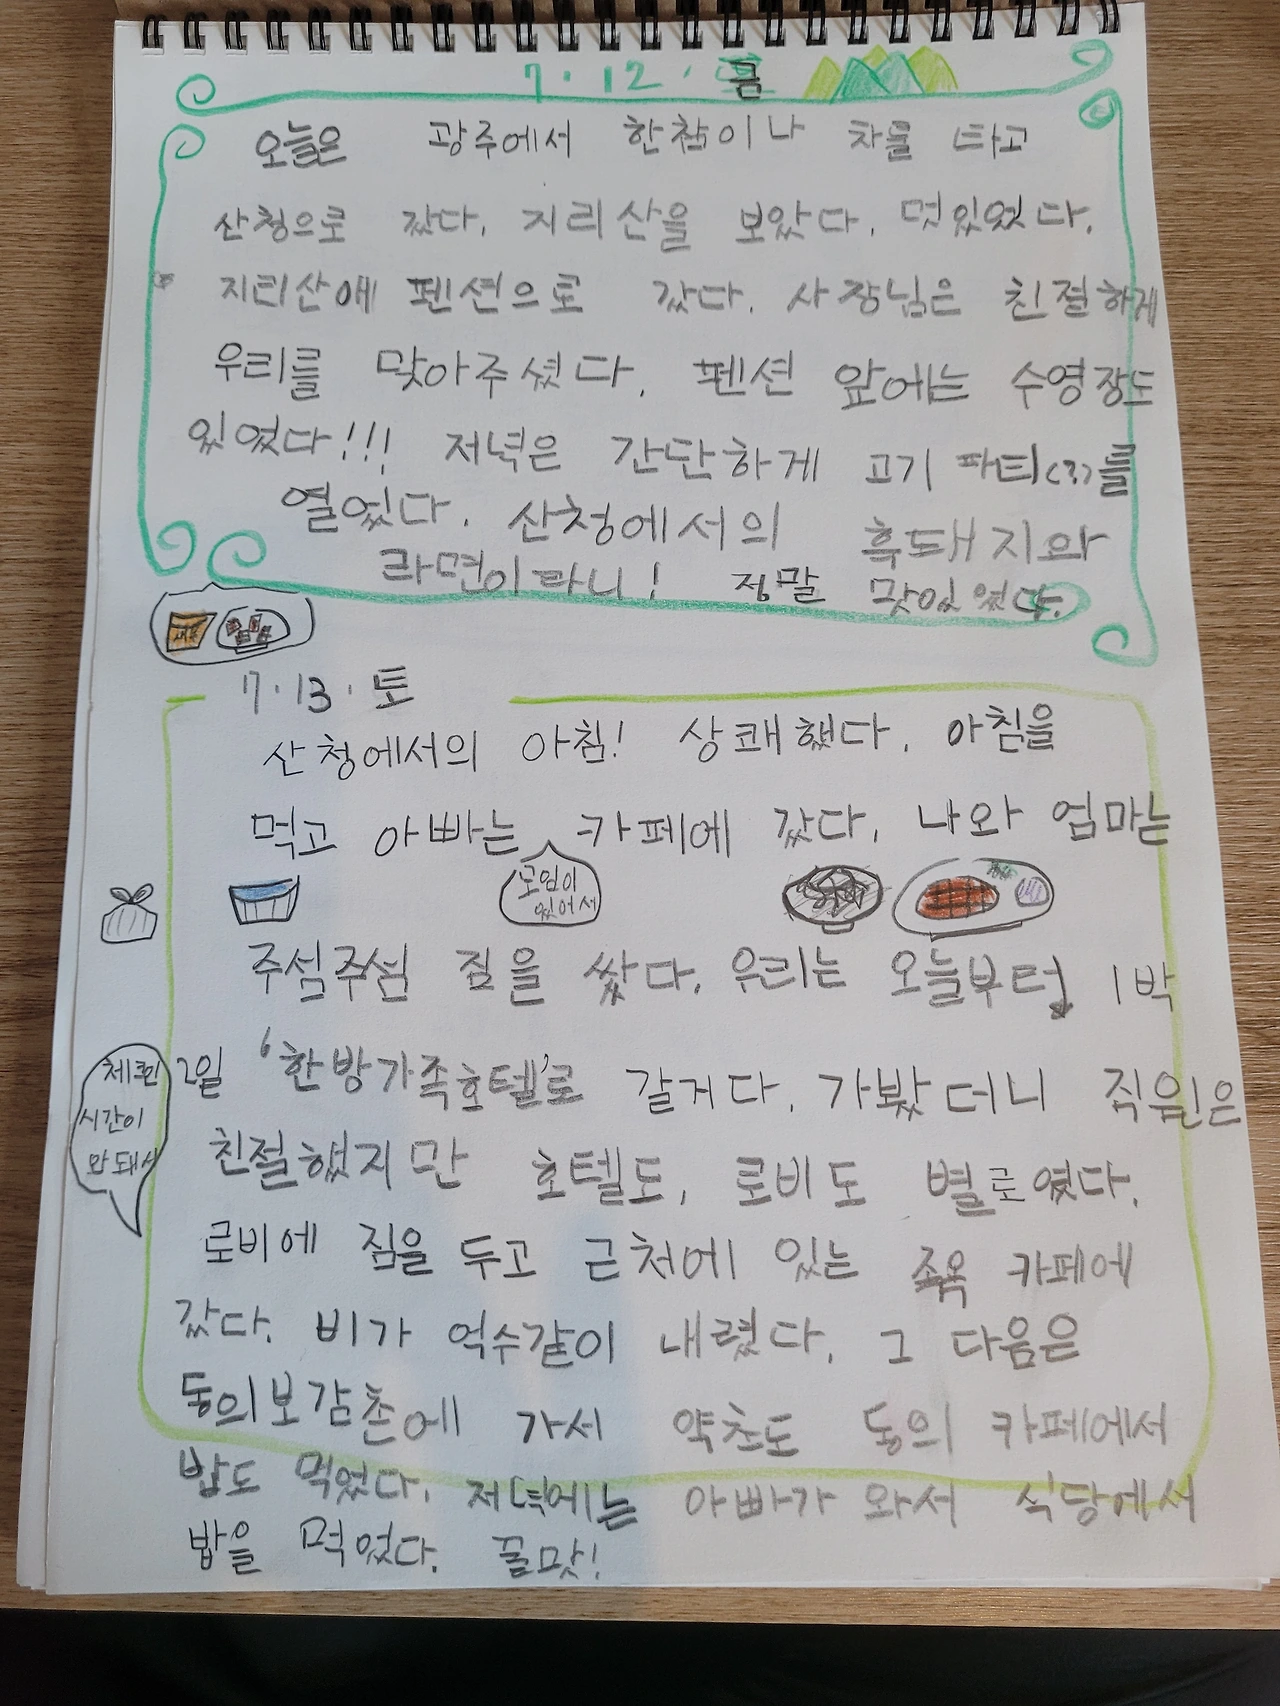 7.12.금
오늘은 광주에서 한참이나 차를 타고
산청으로 갔다. 지리산을 보았다. 멋있었다.
지리산에 펜션으로 갔다. 사장님은 친절하게
우리를 맞아주셨다. 펜션 앞에는 수영장도
있었다!!! 저녁은 간단하게 고기 파티(??)를
열었다. 산청에서의 흑돼지와
라면이라니! 정말 맛있었다.
7.13.토
산청에서의 아침! 상쾌했다. 아침을
먹고 아빠는 카페에 갔다. 나와 엄마는
모임이
있어서
주섬주섬 짐을 쌌다. 우리는 오늘부터 1박
2일 '한방가족호텔'로 갈거다. 가봤더니 직원은
체크인
시간이
안돼서
친절했지만 호텔도, 로비도 별로였다.
로비에 짐을 두고 근처에 있는 족욕 카페에
갔다. 비가 억수같이 내렸다. 그 다음은
동의보감촌에 가서 약초도 동의 카페에서
밥도 먹었다. 저녁에는 아빠가 와서 식당에서
밥을 먹었다. 꿀맛!